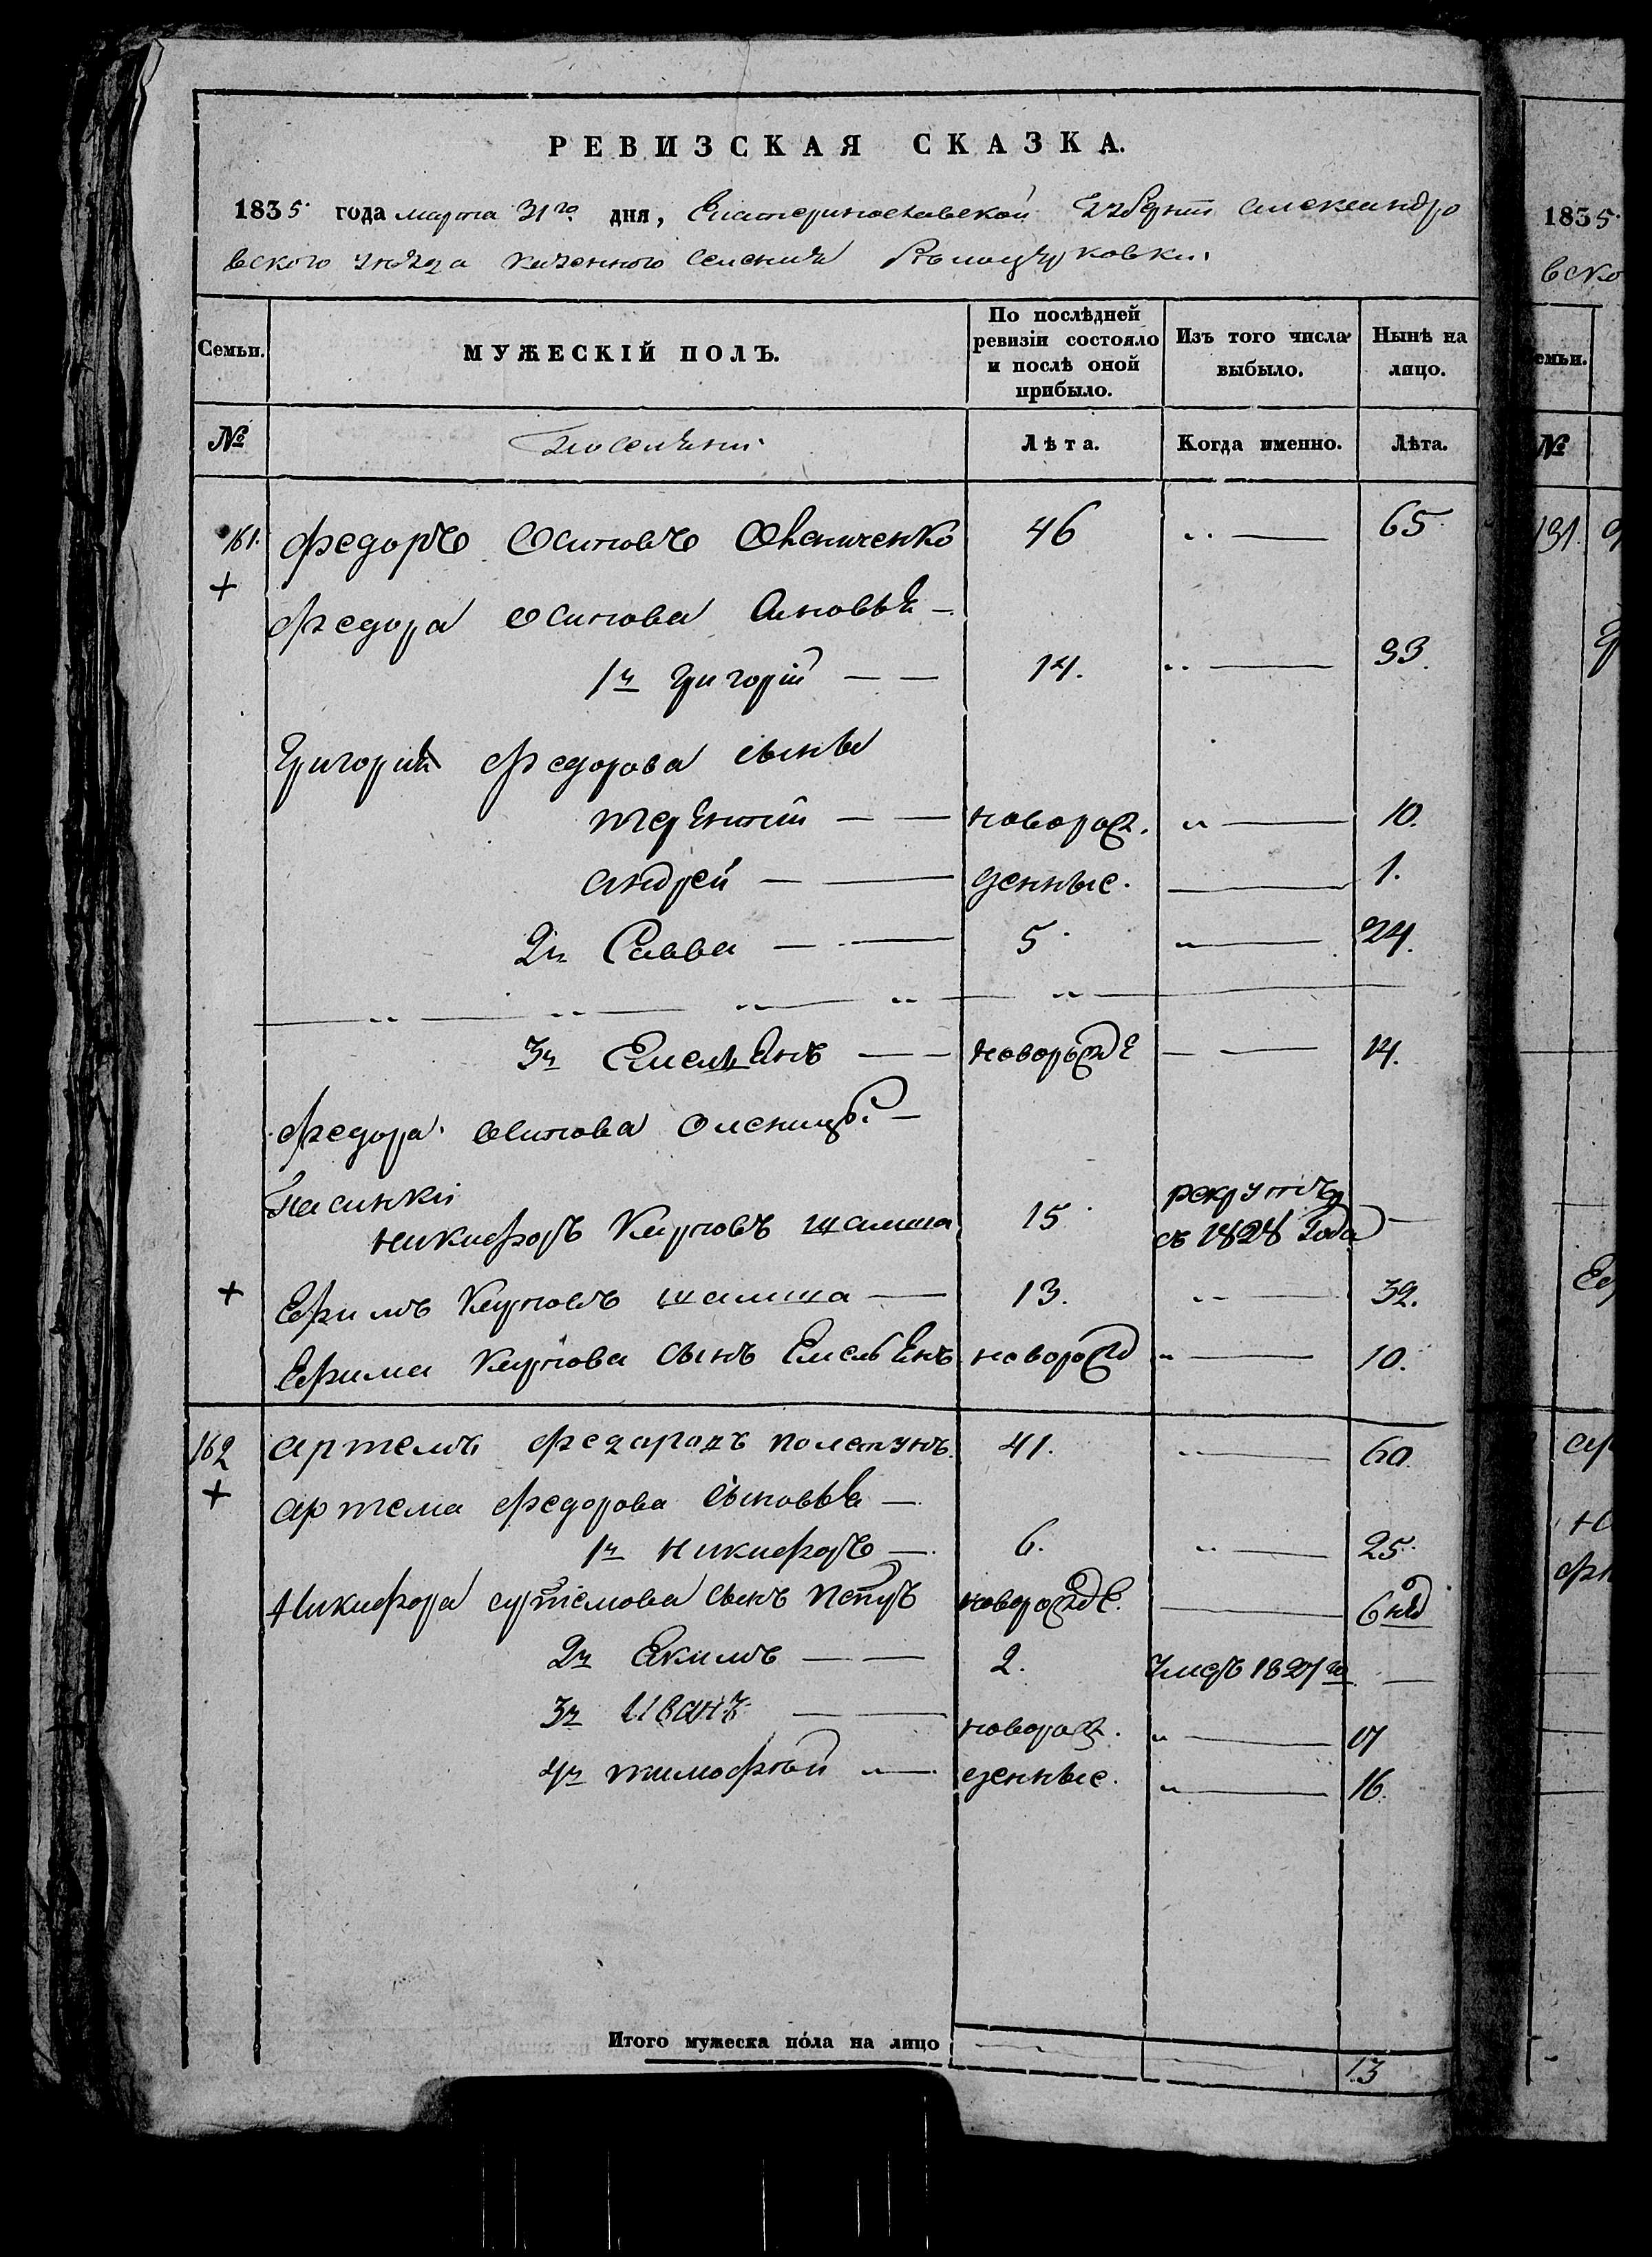 РЕВИЗСКАЯ СКАЗКА.
1835 года марта 31го дня, Екатеринославской Губернии Александро
вского уезда казенного селения Белоцерковки.
Семьи. МУЖЕСКІЙ ПОЛЪ. По послѣдней ревизіи состояло и послѣ оной прибыло. Изъ того числа выбыло. Нынѣ на лицо.
№ Поселяни Лѣта. Когда именно. Лѣта.
161. Федоръ Осиповъ 46 65
+
Федора Осипова сыновья
1й Григорій 14. 33.
Григорія Федорова сыны
терентий новорож. 10.
андрей денные. 1.
2й Савва 5 24.
3й Емельянъ новорожде 14.
Федора Осипова
Пасинки
никифоръ Карповъ шамша 15 рекрутъ съ 1828 Года
+ Ефимъ Карповъ шамша 13. 32.
Ефима Карпова сынъ Емельянъ новорожд 10.
162 артемъ Федоровъ полетунъ 41. 60
+ артема Федорова сыновья
1й никифоръ 6. 25.
Никифора артемова сынъ петръ новорожде. 6 нед
2й Екимъ 2. умеръ 1827го
3й Иванъ новорож. 17
4й тимофей денные. 16.
Итого мужеска пола на лицо 13
1835
вско
Семьи.
№
131